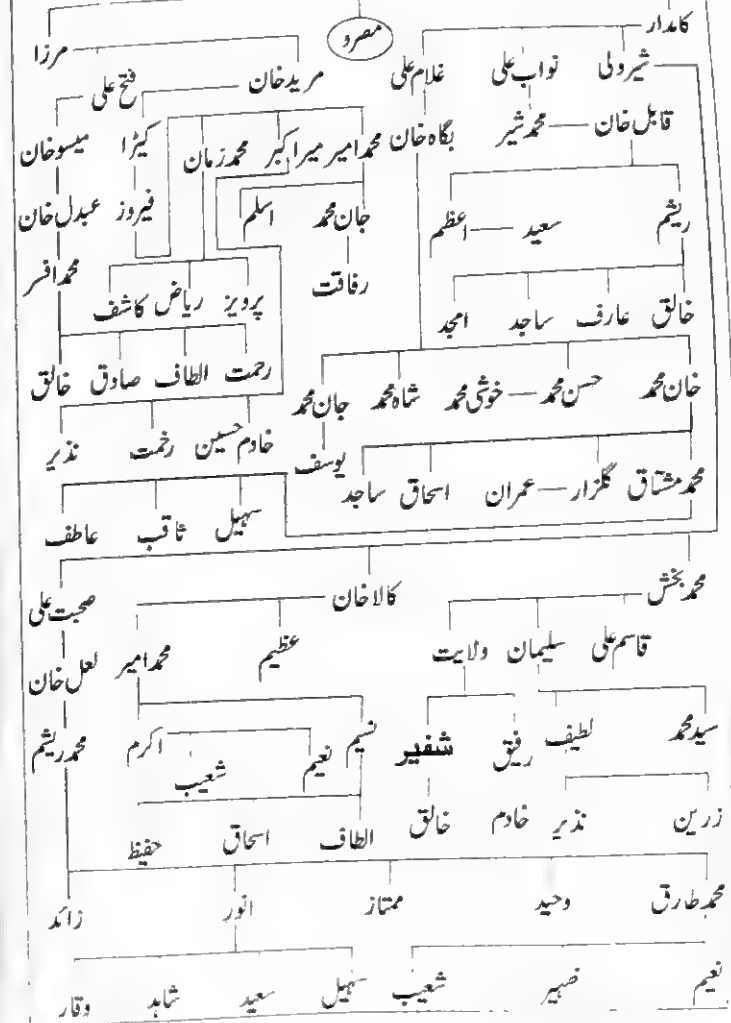 کامدار
مصرو
مرزا
شیرولی نواب علی غلام علی
مرید خان فتح علی
قابل خان — محمد شیر بگاہ خان
محمد امیر میر اکبر محمد زمان کیڑا میسو خان
ریشم سعید — اعظم
جان محمد اسلم فیروز عبدل خان
رفاقت محمد افسر
خالق عارف ساجد امجد
پرویز ریاض کاشف
رحمت الطاف صادق خالق
خان محمد حسن محمد — خوشی محمد شاہ محمد جان محمد
خادم حسین رخمت نذیر
یوسف
محمد مشتاق گلزار — عمران اسحاق ساجد
سہیل ثاقب عاطف
محمد بخش کالا خان صحبت علی
قاسم علی سلیمان ولایت عظیم محمد امیر لعل خان
سید محمد لطیف رفیق شفیر نسیم نعیم شعیب اکرم محمد ریشم
زرین نذیر خادم خالق الطاف اسحاق حفیظ
محمد طارق وحید ممتاز انور زائد
نعیم ضہیر شعیب سہیل سعید شاہد وقار